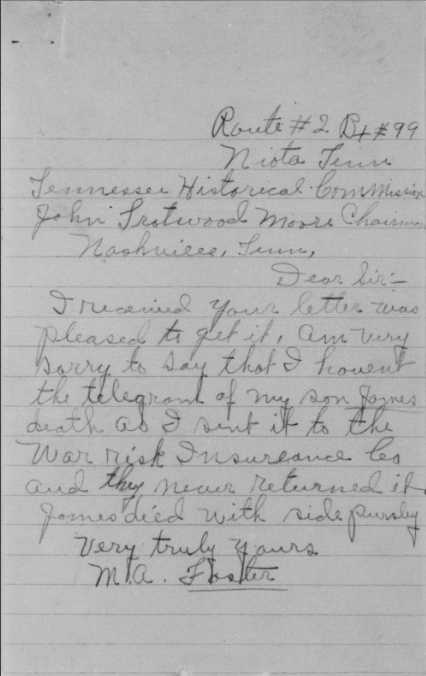 Route #2 Bx #99
Niota Tenn
Tennessee Historical Commission
John Trotwood Moore Chairman
Nashville, Tenn,
Dear Sir:-
I received your letter was
pleased to get it, am very
sorry to say that I havent
the telegram of my son James
death as I sent it to the
War risk Insureance Co
and they never returned it
James died with side pursley
Very truly yours
M.A. Foster